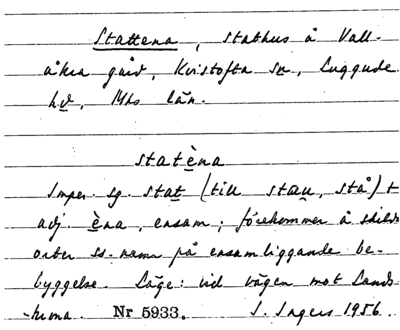 Stattena, stathus å Vall-
åkra gård, Kvistofta sn, Luggude
hd, Mhs län.
statèna
Imper. sg. stat (till stau, stå) +
adj. èna, ensam; förekommer å skilda
orter ss. namn på ensamliggande be-
byggelse. Läge: vid vägen mot Lands-
krona. Nr 5933. I. Ingers 1956.